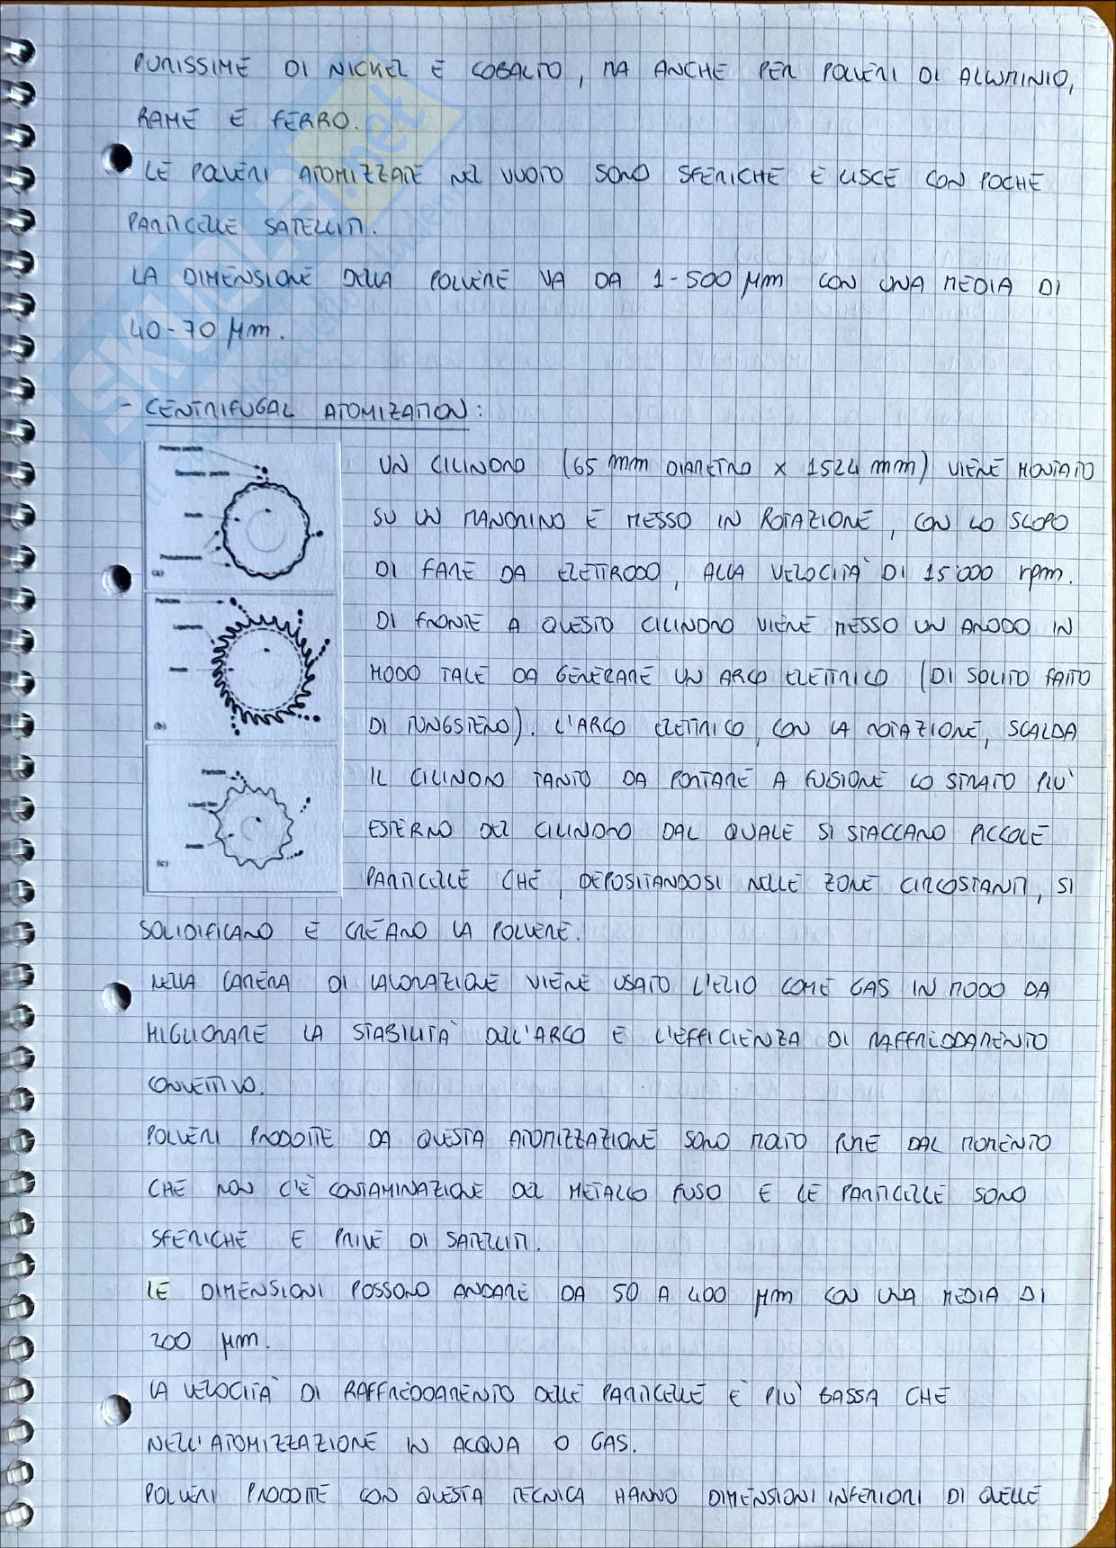 PURISSIME DI NICHEL E COBALTO, MA ANCHE PER POLVERI DI ALLUMINIO,
RAME E FERRO.
LE POLVERI ATOMIZZATE NEL VUOTO SONO SFERICHE E LISCE CON POCHE
PARTICELLE SATELLITI.
LA DIMENSIONE DELLA POLVERE VA DA 1-500 μm CON UNA MEDIA DI
40-70 μm.
- CENTRIFUGAL ATOMIZATION:
UN CILINDRO (65 mm DIAMETRO x 1524 mm) VIENE MONTATO
SU UN MANDRINO E MESSO IN ROTAZIONE, CON LO SCOPO
DI FARE DA ELETTRODO, ALLA VELOCITÀ DI 15'000 rpm.
DI FRONTE A QUESTO CILINDRO VIENE MESSO UN ANODO IN
MODO TALE DA GENERARE UN ARCO ELETTRICO (DI SOLITO FATTO
DI TUNGSTENO). L'ARCO ELETTRICO, CON LA ROTAZIONE, SCALDA
IL CILINDRO TANTO DA PORTARE A FUSIONE LO STRATO PIÙ
ESTERNO DEL CILINDRO DAL QUALE SI STACCANO PICCOLE
PARTICELLE CHE, DEPOSITANDOSI NELLE ZONE CIRCOSTANTI, SI
SOLIDIFICANO E CREANO LA POLVERE.
NELLA CAMERA DI LAVORAZIONE VIENE USATO L'ELIO COME GAS IN MODO DA
MIGLIORARE LA STABILITÀ DELL'ARCO E L'EFFICIENZA DI RAFFREDDAMENTO
CONVETTIVO.
POLVERI PRODOTTE DA QUESTA ATOMIZZAZIONE SONO MOLTO PURE DAL MOMENTO
CHE NON C'È CONTAMINAZIONE DEL METALLO FUSO E LE PARTICELLE SONO
SFERICHE E PRIVE DI SATELLITI.
LE DIMENSIONI POSSONO ANDARE DA 50 A 400 μm CON UNA MEDIA DI
200 μm.
LA VELOCITÀ DI RAFFREDDAMENTO DELLE PARTICELLE È PIÙ BASSA CHE
NELL'ATOMIZZAZIONE IN ACQUA O GAS.
POLVERI PRODOTTE CON QUESTA TECNICA HANNO DIMENSIONI INFERIORI DI QUELLE
Primary particle
Secondary particle
(a)
Particles
Ligaments
(b)
Particles
(c)
SKUOLA.net